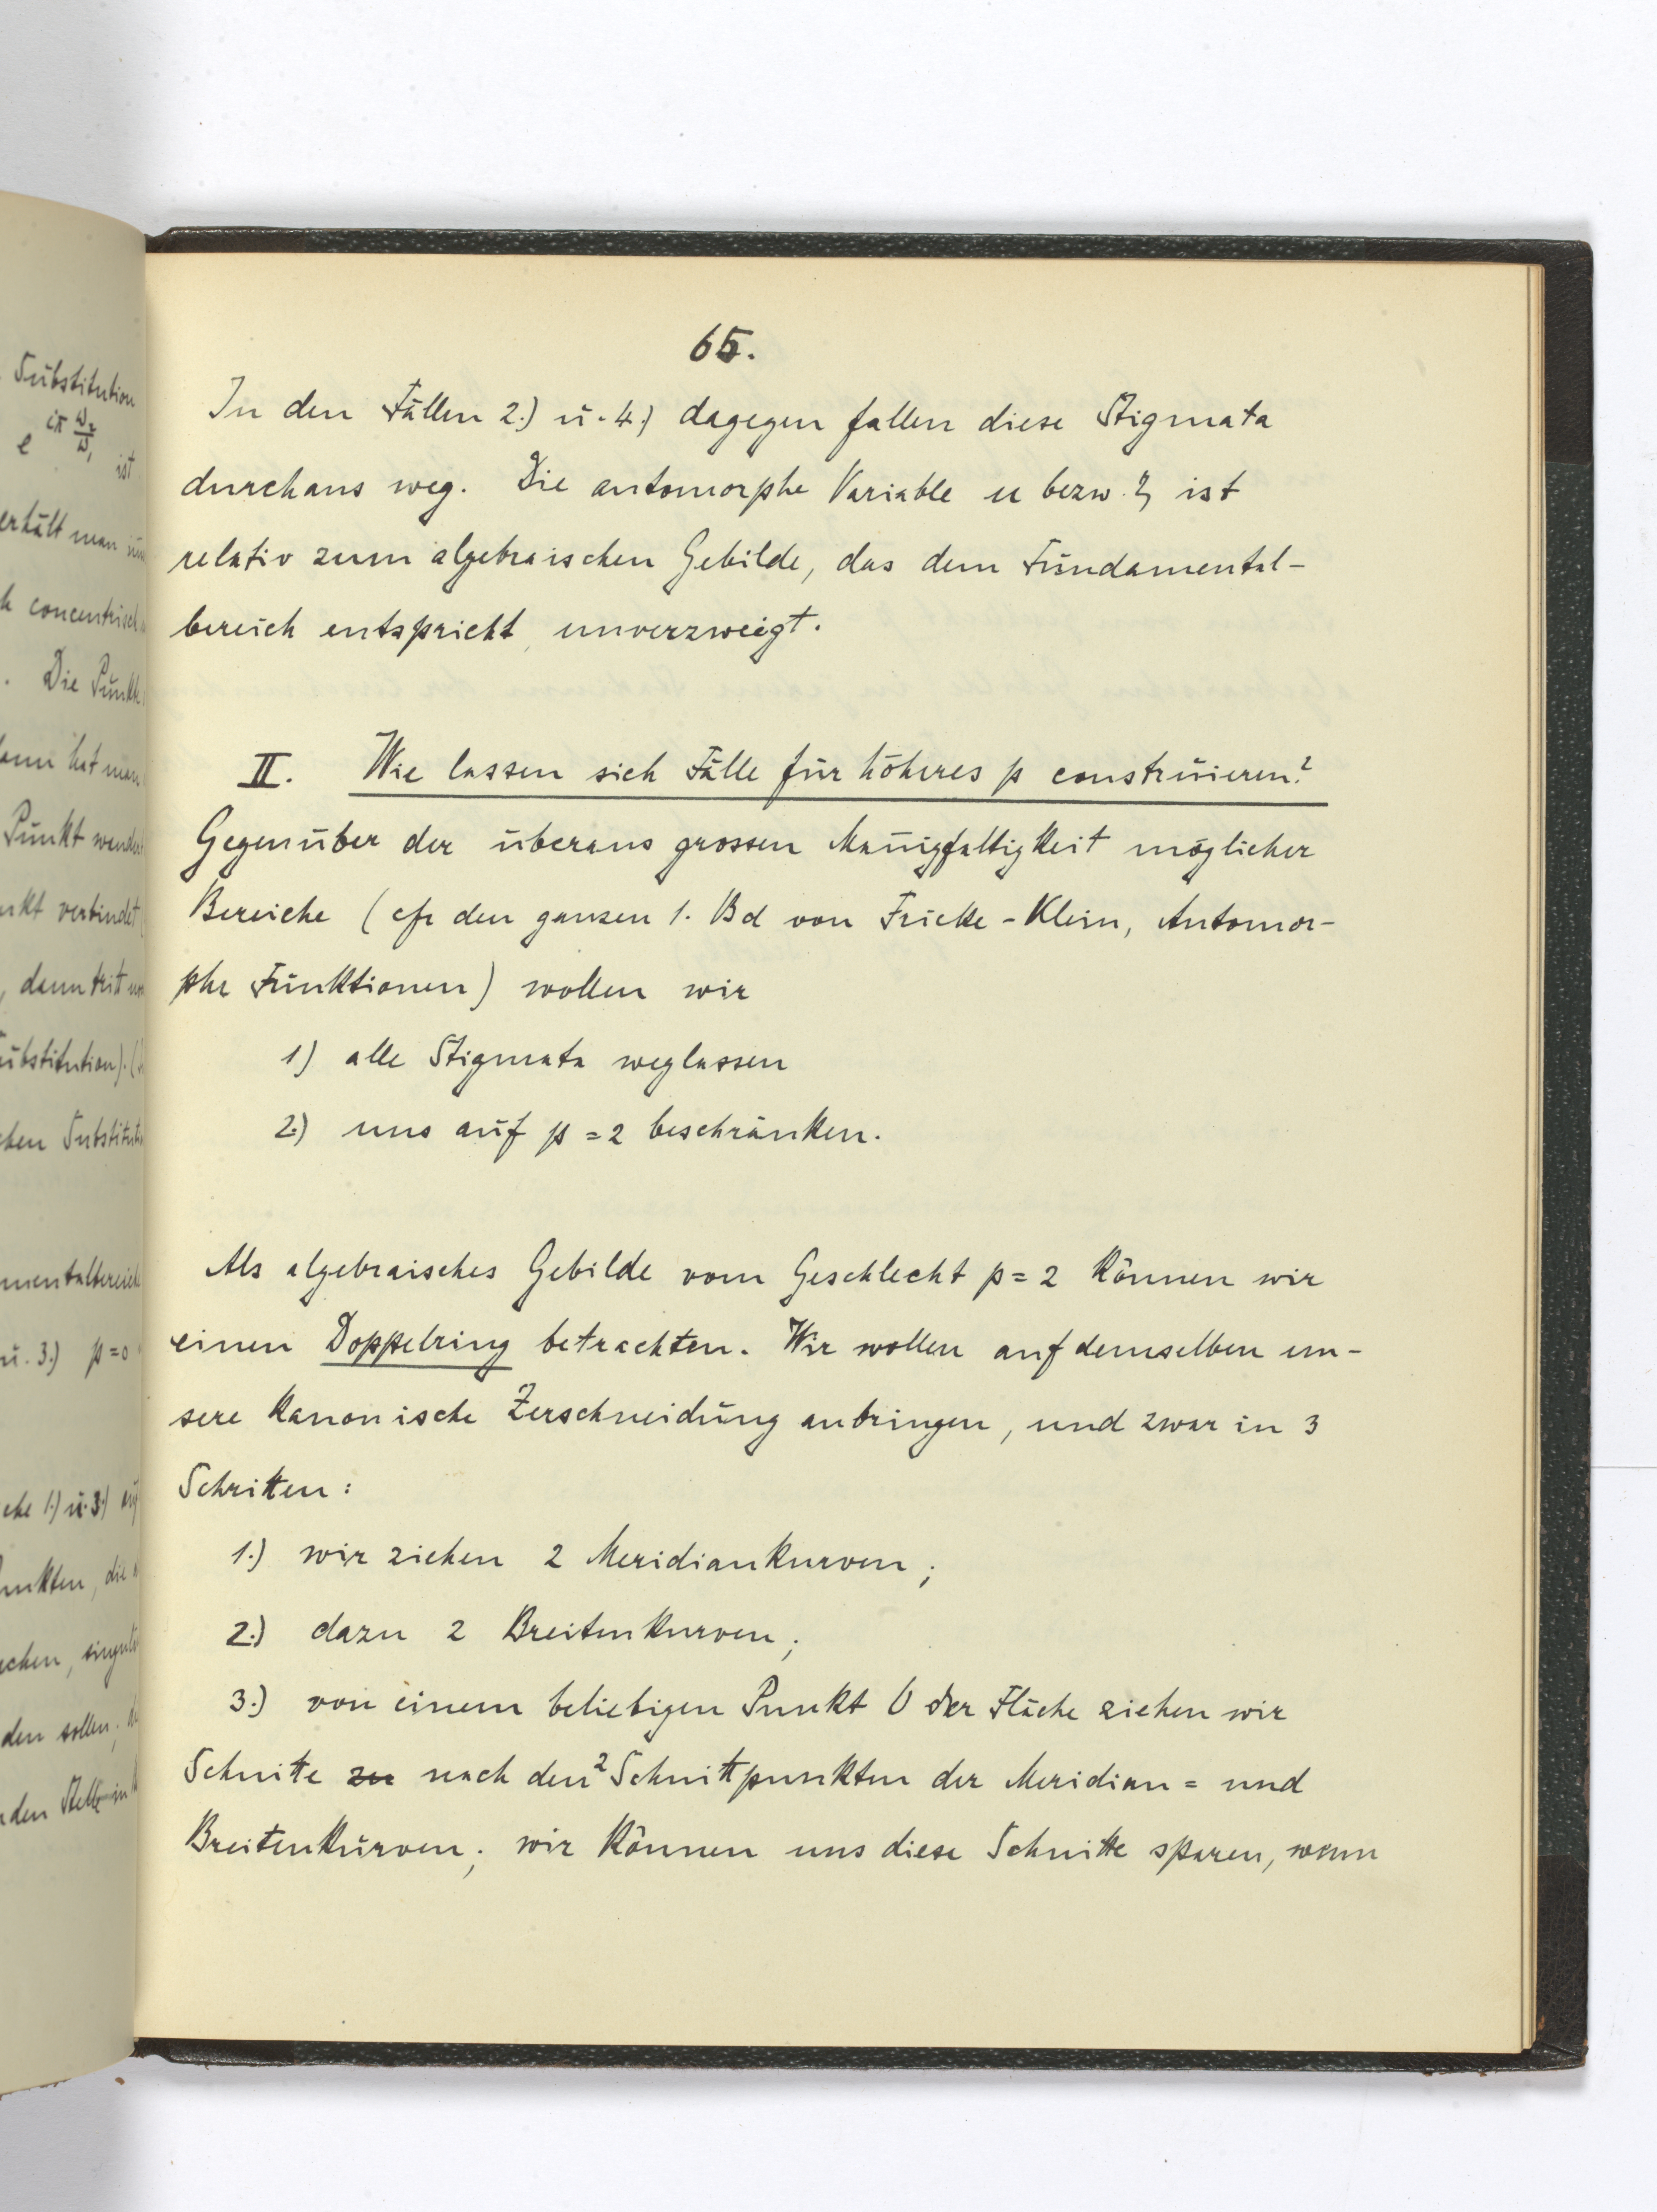 Substitution
e^{iπ ω₂/ω₁} ist
erhält man
concentrisch
. Die Punkte
dann hat man
Punkt wendet
verbindet
, dann tritt
Substitution).
Substituti
mentalbereich
u. 3.) p=0
1.) u. 3.)
unkten, die
chen, singulä
den sollen,
den Stelle in
65.
In den Fällen 2.) u. 4.) dagegen fallen diese Stigmata
durchaus weg. Die automorphe Variable u bezw. η ist
relativ zum algebraischen Gebilde, das dem Fundamental-
bereich entspricht, unverzweigt.
II. Wie lassen sich Fälle für höheres p construieren?
Gegenüber der überaus grossen Man̄igfaltigkeit möglicher
Bereiche (cfr den ganzen 1. Bd von Fricke - Klein, Automor-
phe Funktionen) wollen wir
1) alle Stigmata weglassen
2) uns auf p = 2 beschränken.
Als algebraisches Gebilde vom Geschlecht p = 2 können wir
einen Doppelring betrachten. Wir wollen auf demselben un-
sere kanonische Zerschneidung anbringen, und zwar in 3
Schritten:
1.) wir ziehen 2 Meridiankurven;
2.) dazu 2 Breitenkurven;
3.) von einem beliebigen Punkt O der Fläche ziehen wir
Schnitte zu nach den 2 Schnittpunkten der Meridian = und
Breitenkurven; wir können uns diese Schnitte sparen, wenn